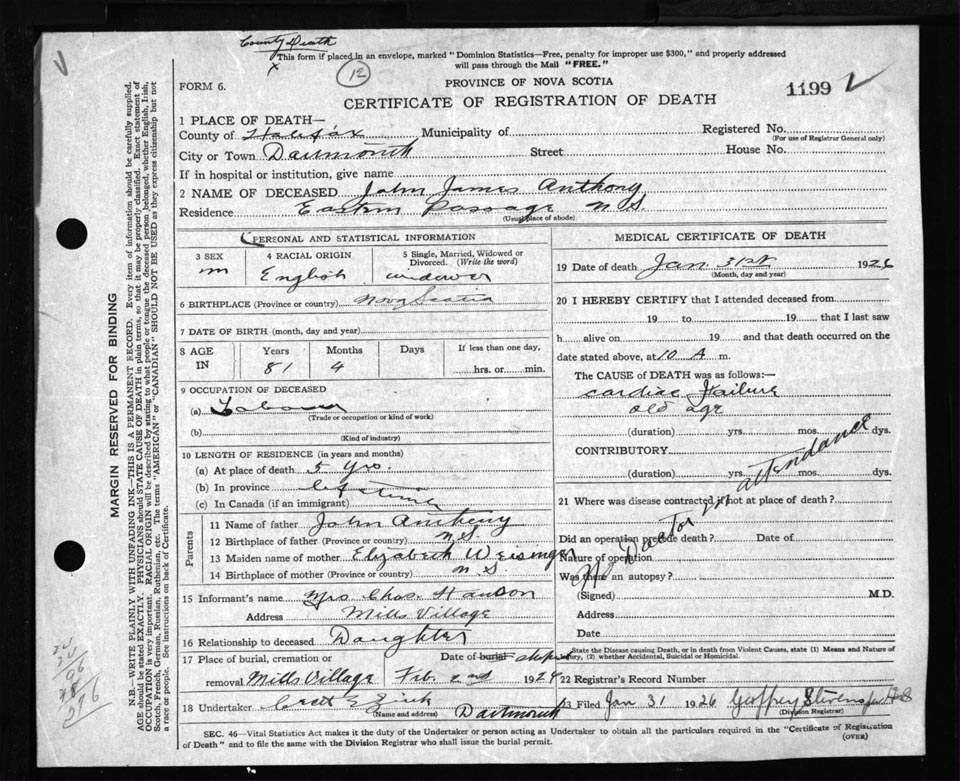 County Death
This form if placed in an envelope, marked "Dominion Statistics—Free, penalty for improper use $300," and properly addressed
x will pass through the Mail "FREE."
12
PROVINCE OF NOVA SCOTIA
1199
FORM 6.
CERTIFICATE OF REGISTRATION OF DEATH
1 PLACE OF DEATH—
County of Halifax Municipality of Registered No.
(For use of Registrar General only)
City or Town Dartmouth Street House No.
If in hospital or institution, give name
2 NAME OF DECEASED John James Anthony
Residence Eastern Passage N S.
(Usual place of abode)
PERSONAL AND STATISTICAL INFORMATION
3 SEX
m
4 RACIAL ORIGIN
English
5 Single, Married, Widowed or
Divorced. (Write the word)
widower
6 BIRTHPLACE (Province or country) Nova Scotia
7 DATE OF BIRTH (month, day and year)
8 AGE
IN
Years
81
Months
4
Days
If less than one day,
hrs. or min.
9 OCCUPATION OF DECEASED
(a) Labourer
(Trade or occupation or kind of work)
(b)
(Kind of industry)
10 LENGTH OF RESIDENCE (in years and months)
(a) At place of death 5 yrs.
(b) In province lifetime
(c) In Canada (if an immigrant)
Parents
11 Name of father John Anthony
12 Birthplace of father (Province or country) N.S.
13 Maiden name of mother Elizabeth Weisinger
14 Birthplace of mother (Province or country) N S
15 Informant's name Mrs Chas.
Address Mills Village
16 Relationship to deceased Daughter
17 Place of burial, cremation or Date of burial
removal Mills Village Feb 2nd 192
18 Undertaker
(Name and address) Dartmouth
MEDICAL CERTIFICATE OF DEATH
19 Date of death Jan. 31st 1926
(Month, day and year)
20 I HEREBY CERTIFY that I attended deceased from
19 to 19 that I last saw
h alive on 19 and that death occurred on the
date stated above, at 10 A m.
The CAUSE of DEATH was as follows:—
cardiac Failure
old age
(duration) yrs. mos. dys.
CONTRIBUTORY
(duration) yrs. mos. dys.
No Doctor in attendance
21 Where was disease contracted if not at place of death?
Did an operation precede death? Date of
Nature of operation
Was there an autopsy?
(Signed) M.D.
Address
Date
State the Disease causing Death, or in death from Violent Causes, state (1) Means and Nature of
Injury, (2) whether Accidental, Suicidal or Homicidal.
22 Registrar's Record Number
23 Filed Jan 31 1926 Geoffrey
(Division Registrar)
SEC. 46—Vital Statistics Act makes it the duty of the Undertaker or person acting as Undertaker to obtain all the particulars required in the "Certificate of Registration
of Death" and to file the same with the Division Registrar who shall issue the burial permit.
(OVER)
MARGIN RESERVED FOR BINDING
N.B.—WRITE PLAINLY WITH UNFADING INK—THIS IS A PERMANENT RECORD. Every item of information should be carefully supplied.
AGE should be stated EXACTLY. PHYSICIANS should STATE CAUSE OF DEATH in plain terms, so that it may be properly classified. Exact statement of
OCCUPATION is very important. RACIAL ORIGIN will be described by stating to what people or tongue the deceased person belonged, whether English, Irish,
Scotch, French, German, Russian, Ruthenian, etc. The terms "AMERICAN" or "CANADIAN" SHOULD NOT BE USED as they express citizenship but not
a race or people. See instructions on back of Certificate.